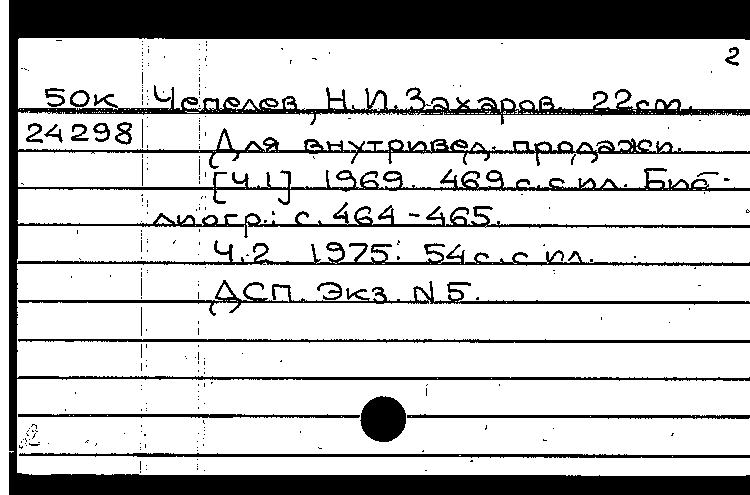 2
50к Чепелев, Н.И. Захаров. 22cm.
24298 Для внутривед. продажи.
[Ч.1] 1969. 469 с. с ил. Биб-
лиогр.: с. 464-465.
Ч.2 1975. 54 с. с ил.
ДСП. Экз. N 5.